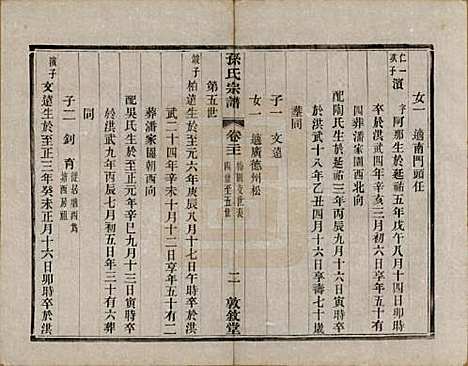 女一 適南門頭任
仁一
淇子
濵 字阿那生於延祐五年戊午八月十四日卯時
卒於洪武二十四年辛亥三月初十日享年
四葬潘家園西北向
配陶氏生於延祐三年丙辰九月十六日寅時卒
於洪武十八年乙丑四月十六日享壽七十歲
葬同
子一 文遠
女一 適廣德州松
孫氏宗譜
卷三
四世至五世
二
敦敘堂
第五世
柏遠生於至元六年庚辰八月十七日午時卒於洪
武二十四年辛未十月十二日享年五十有二
葬潘家園西向
配吳氏生於至正元年辛巳九月十三日寅時卒
於洪武九年丙辰七月初五日年三十有六葬
同
子二 釗 育
濵子
文遠生於至正三年癸未正月十六日卯時卒於洪